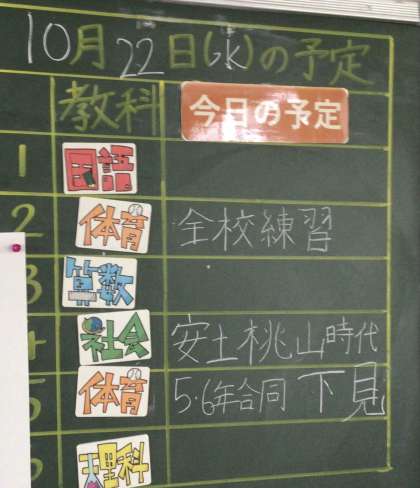 10月22日(水)の予定
教科 今日の予定
1 国語
2 体育 全校練習
3 算数
4 社会 安土桃山時代
5 体育 5・6年合同 下見
理科